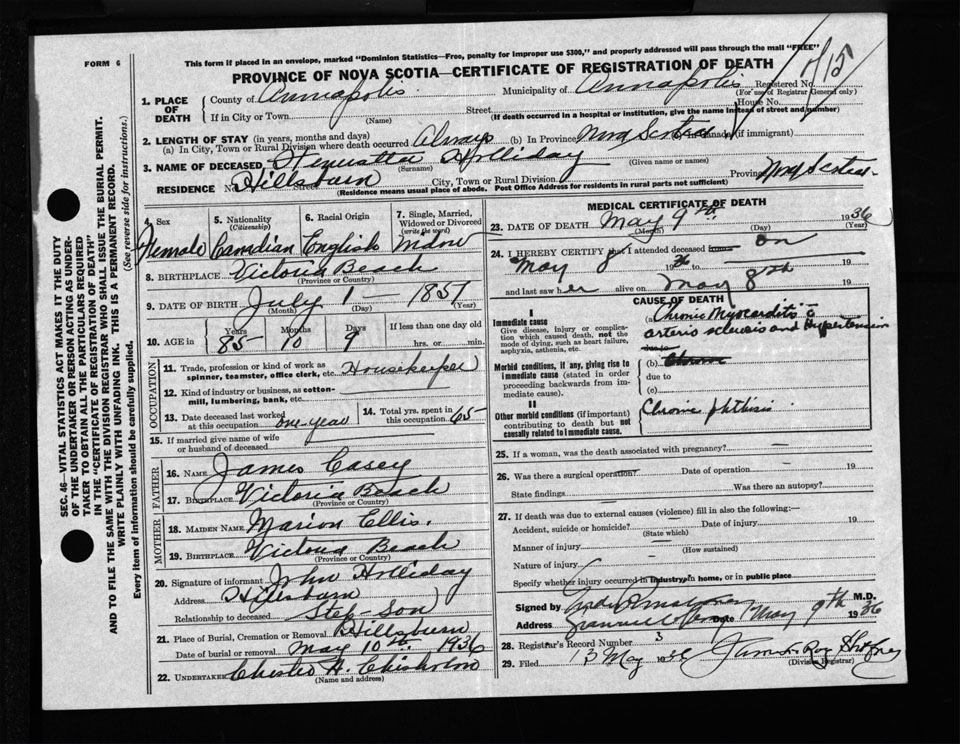 FORM 6
This form if placed in an envelope, marked "Dominion Statistics—Free, penalty for improper use $300," and properly addressed will pass through the mail "FREE"
PROVINCE OF NOVA SCOTIA—CERTIFICATE OF REGISTRATION OF DEATH
1. PLACE OF DEATH
County of Annapolis Municipality of Annapolis Registered No.
(For use of Registrar General only)
If in City or Town (Name) Street House No.
(If death occurred in a hospital or institution, give the name instead of street and number)
2. LENGTH OF STAY (in years, months and days)
(a) In City, Town or Rural Division where death occurred Always (b) In Province Nova Scotia Canada (if immigrant)
3. NAME OF DECEASED Holliday
(Surname) (Given name or names)
RESIDENCE No. Hillsburn Street City, Town or Rural Division Province Nova Scotia
(Residence means usual place of abode. Post Office Address for residents in rural parts not sufficient)
4. Sex Female
5. Nationality (Citizenship) Canadian
6. Racial Origin English
7. Single, Married, Widowed or Divorced (write the word) Widow
8. BIRTHPLACE Victoria Beach
(Province or Country)
9. DATE OF BIRTH July 1 1851
(Month) (Day) (Year)
10. AGE in Years Months Days If less than one day old
85 10 9 hrs. or min.
OCCUPATION
11. Trade, profession or kind of work as spinner, teamster, office clerk, etc. Housekeeper
12. Kind of industry or business, as cotton-mill, lumbering, bank, etc.
13. Date deceased last worked at this occupation one year
14. Total yrs. spent in this occupation 65
15. If married give name of wife or husband of deceased
FATHER
16. NAME James Casey
17. BIRTHPLACE Victoria Beach
(Province or Country)
MOTHER
18. MAIDEN NAME Marion Ellis.
19. BIRTHPLACE Victoria Beach
(Province or Country)
20. Signature of informant John Holliday
Address Hillsburn
Relationship to deceased Step-Son
21. Place of Burial, Cremation or Removal Hillsburn
Date of burial or removal May 10th 1936
22. UNDERTAKER Chesley H. Chisholm
(Name and address)
MEDICAL CERTIFICATE OF DEATH
23. DATE OF DEATH May 9th 1936
(Month) (Day) (Year)
24. I HEREBY CERTIFY that I attended deceased from on
May 8 1936 to 19
and last saw her alive on May 8th 19
CAUSE OF DEATH
I
Immediate cause
Give disease, injury or complication which caused death, not the mode of dying, such as heart failure, asphyxia, asthenia, etc.
(a) Chronic Myocarditis c
arterio sclerosis and Hypertension
due to
Morbid conditions, if any, giving rise to immediate cause (stated in order proceeding backwards from immediate cause).
(b) Chronic
due to
(c)
II
Other morbid conditions (if important) contributing to death but not causally related to immediate cause.
Chronic phthisis
25. If a woman, was the death associated with pregnancy?
26. Was there a surgical operation? Date of operation 19
State findings Was there an autopsy?
27. If death was due to external causes (violence) fill in also the following:—
Accident, suicide or homicide? Date of injury 19
(State which)
Manner of injury
(How sustained)
Nature of injury
Specify whether injury occurred in industry, in home, or in public place
Signed by M.D.
Address Date May 9th 1936
28. Registrar's Record Number 3
29. Filed 13 May 1936
(Division Registrar)
SEC. 46—VITAL STATISTICS ACT MAKES IT THE DUTY
OF THE UNDERTAKER OR PERSON ACTING AS UNDER-
TAKER TO OBTAIN ALL THE PARTICULARS REQUIRED
IN THE "CERTIFICATE OF REGISTRATION OF DEATH"
AND TO FILE THE SAME WITH THE DIVISION REGISTRAR WHO SHALL ISSUE THE BURIAL PERMIT.
WRITE PLAINLY WITH UNFADING INK. THIS IS A PERMANENT RECORD.
Every item of information should be carefully supplied. (See reverse side for instructions.)